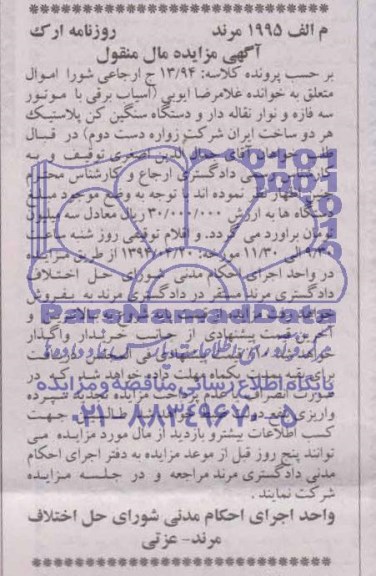 م الف ۱۹۹۵ مرند روزنامه ارک
آگهی مزایده مال منقول
بر حسب پرونده کلاسه: ۱۳/۹۴ ج ارجاعی شورا اموال
متعلق به خوانده غلامرضا ایوبی (آسیاب برقی با موتور
سه فازه و نوار نقاله دار و دستگاه سنگین کن پلاستیک
هر دو ساخت ایران شرکت زواره دست دوم) در قبال
طلب خواهان آقای جمال الدین اصغری توقیف و به
کارشناس رسمی دادگستری ارجاع و کارشناس محترم
چنین اظهار نظر نموده اند با توجه به وضع موجود مبلغ
دستگاه ها به ارزش ۳۰/۰۰۰/۰۰۰ ریال معادل سه میلیون
تومان براورد می گردد. و اقلام توقیفی روز شنبه ساعت
۹/۳۰ الی ۱۱/۳۰ مورخه: ۱۳۹۴/۰۴/۲۰ از طریق مزایده
در واحد اجرای احکام مدنی شورای حل اختلاف
دادگستری مرند مستقر در دادگستری مرند به بفروش
خواهد
آخرین قیمت پیشنهادی از جانب خریدار واگذار
خواهد شد پیشنهادی فی المجلس
برای بقیه یکماه مهلت داده خواهد شد که در
صورت انصراف یا عدم پرداخت مزایده تجدید سپرده
واریزی بنفع دولت
کسب اطلاعات بیشترو بازدید از مال مورد مزایده می
توانند پنج روز قبل از موعد مزایده به دفتر اجرای احکام
مدنی دادگستری مرند مراجعه و در جلسه مزایده
شرکت نمایند.
واحد اجرای احکام مدنی شورای حل اختلاف
مرند- عزتی
ParsNamadData
پایگاه اطلاع رسانی مناقصه و مزایده
۰۲۱-۸۸۳۴۹۶۷۰-۵